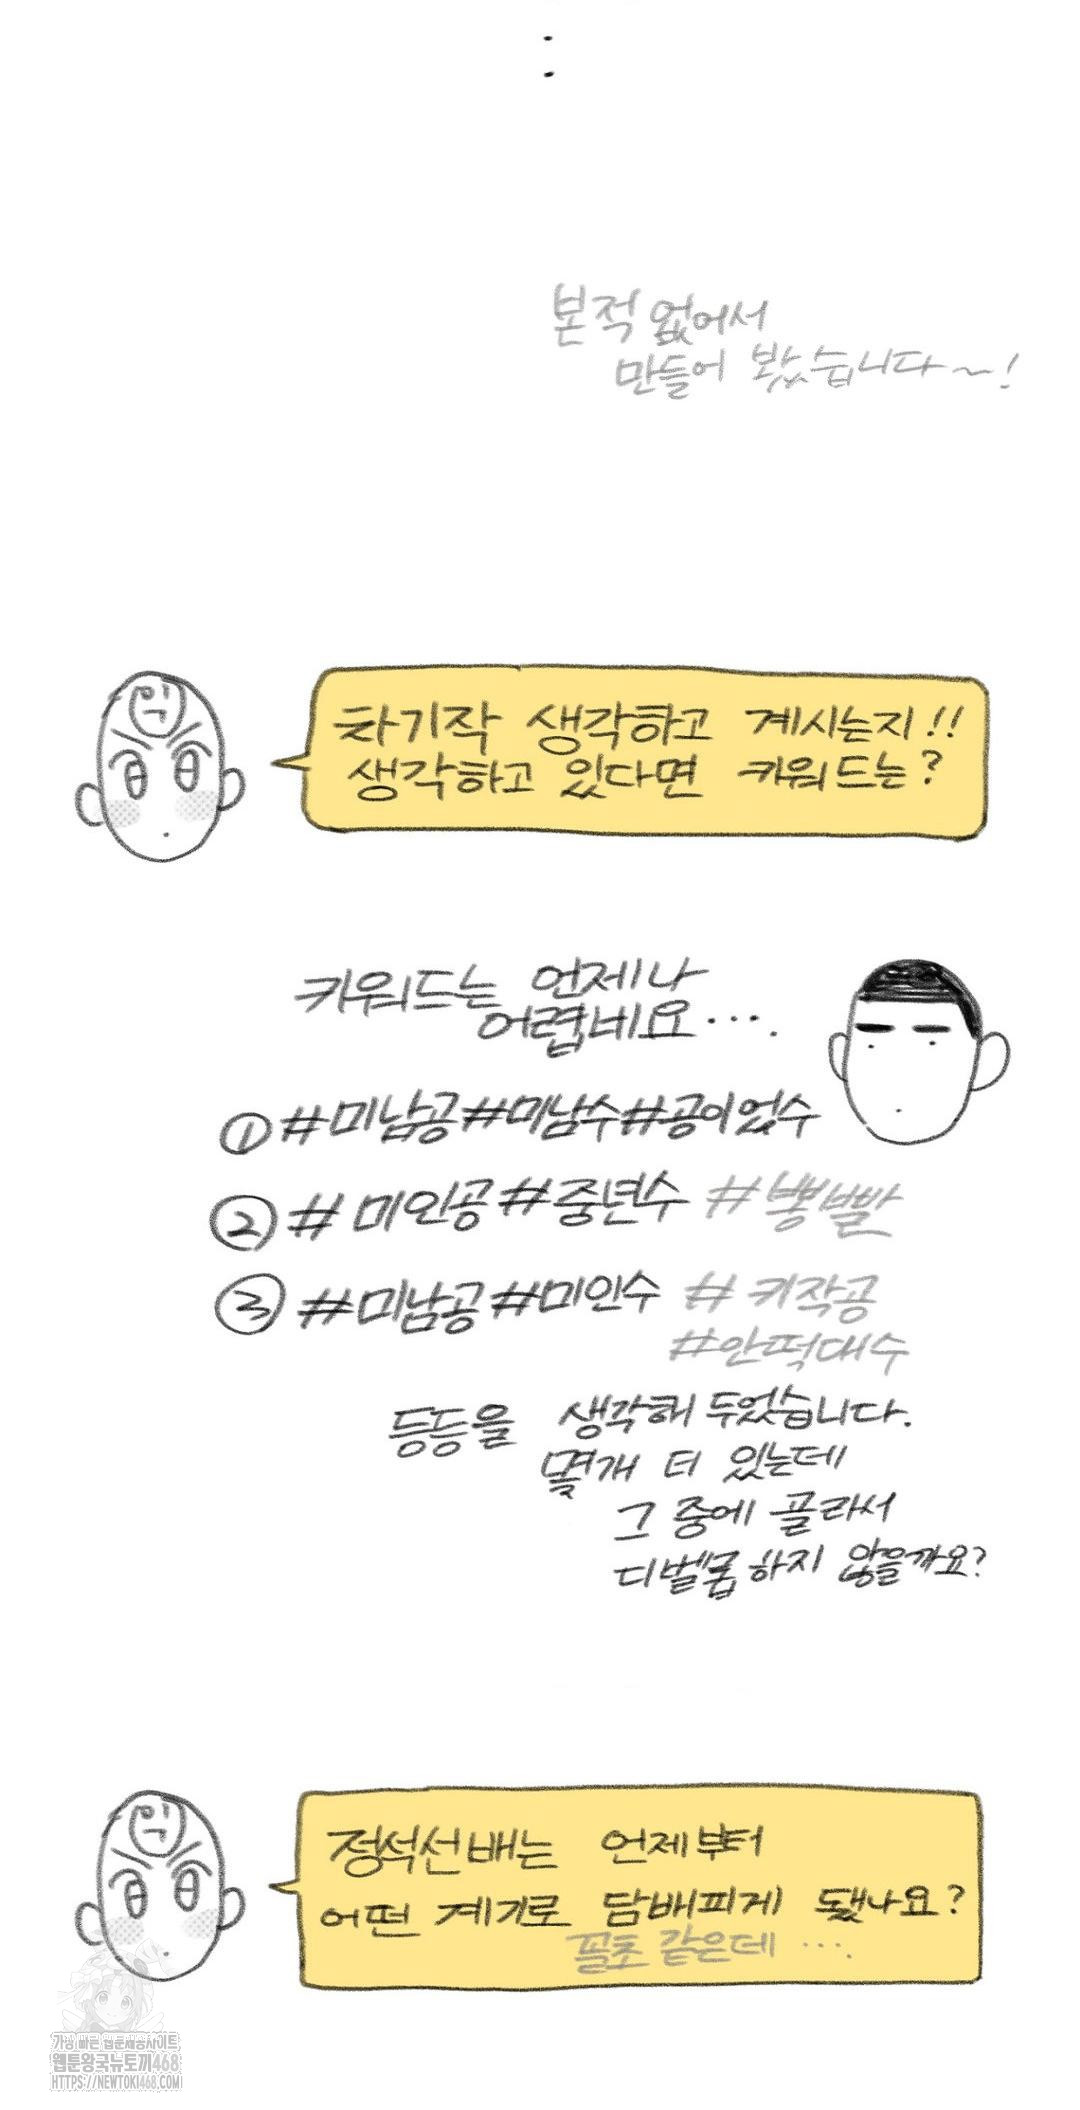 본적 없어서
만들어 봤습니다~!
차기작 생각하고 계시는지!!
생각하고 있다면 키워드는?
키워드는 언제나
어렵네요....
① #미남공#미남수#공이었수
② #미인공#중년수 #뽕빨
③ #미남공#미인수 #키작공
#안떡대수
등등을 생각해 두었습니다.
몇개 더 있는데
그 중에 골라서
디벨롭 하지 않을까요?
정석선배는 언제부터
어떤 계기로 담배피게 됐나요?
필초 같은데 ....
가장 빠른 웹툰제공사이트
웹툰왕국뉴토끼468
HTTPS://NEWTOKI468.COM